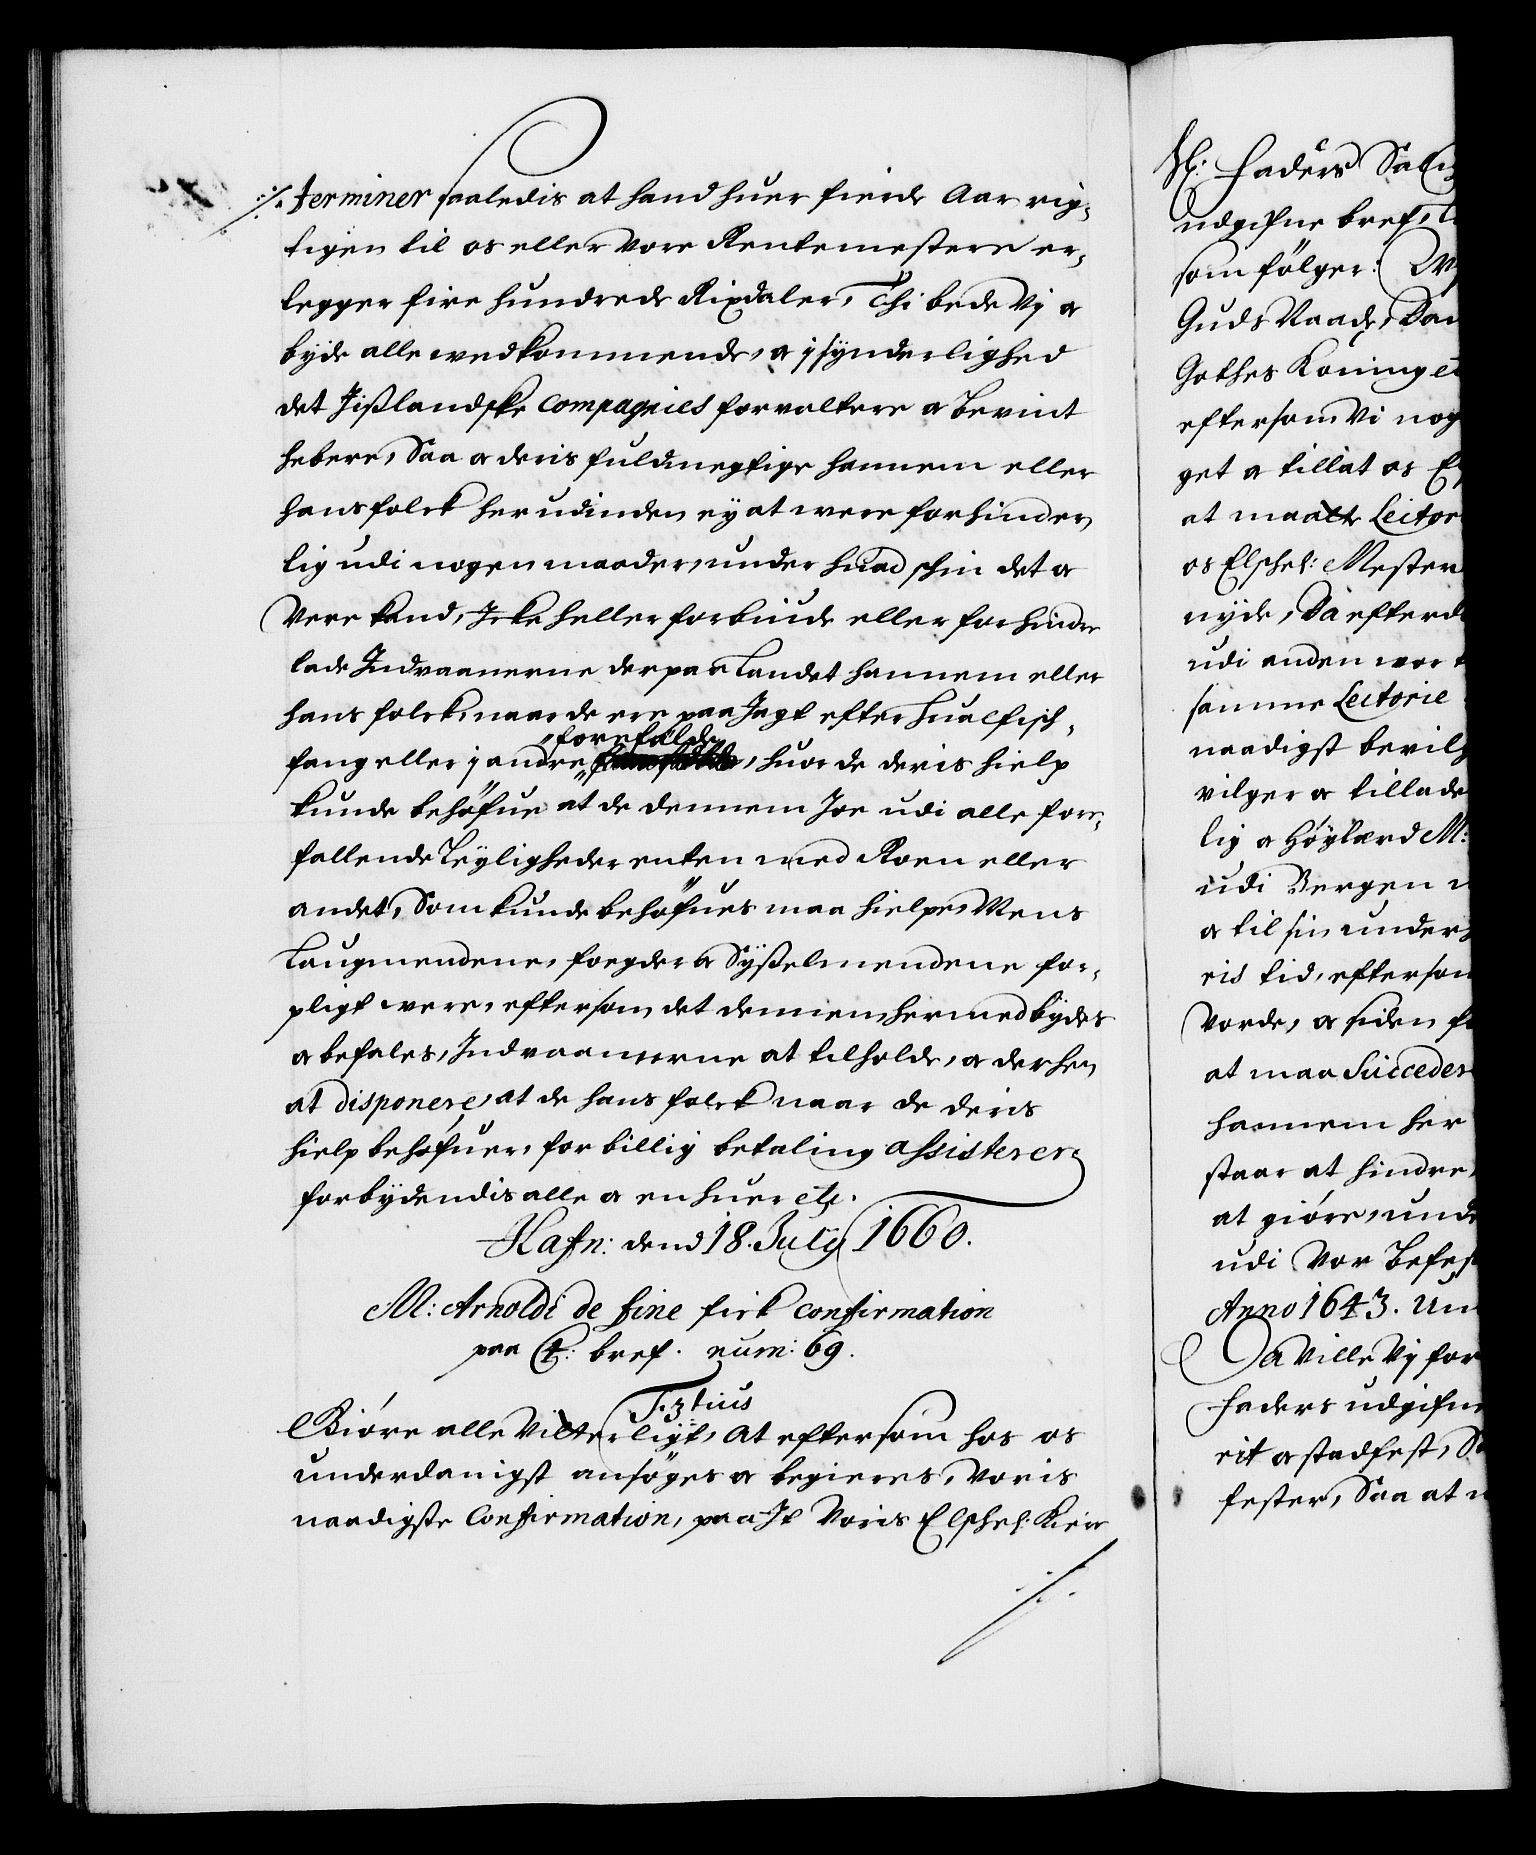 ./. terminer saaledis at hand huer fierde Aar rig-
tigen til os eller Vore Rentemestere er-
legger fire hundrede Rixdaler, Thi bede Vj oc
byde alle wedkommende, oc j synderlighed
det Jißlandske Compagnies forvaltere oc Bevint
hebere, Saa oc deris fuldmegtige hannem eller
hans folck her udinden ey at were forhinder-
lig udi nogen maader, under huad schin det oc
Vere kand, Icke heller forbiude eller forhindre
lade Indvaanerne der paa Landet hannem eller
hans folck, naar de ere paa Jagt efter Hualfisch-
fang eller j andre forefalde, huor de deris hielp
kunde behøfue at de dennem Jo udi alle fore-
fallende Leyligheder enten med Roen eller
andet, Som kunde behøfues maa hielpe, Mens
Laugmendene, fogder oc Sysselmendene for-
pligt were, eftersom det dennem hermed bydes
oc befales, Indvaanerne at tilholde, oc derhen
at disponere, at de hans folck naar de deris
hielp behøfuer, for billig betaling assisterer,
forbydendis alle oc en huer etc.
Hafn: dend 18. Julij 1660.
M: Arnoldi de fine fick confirmation
paa C 4: bref. num: 69.
F. 3tius
Giøre alle Vitterligt, At eftersom hos os
underdanigst ansøges oc begieres, Voris
naadigste Confirmation, paa It Voris Elschel: Kiere
./.
H: Faders Salig
udgifne bref,
som følger:
Guds Naade, Dan
Gothes Koning
eftersom Vi nog
get oc tillat os
at maatte Lector
os Elschel: Mester
nyde, Da efter
udi anden wor
samme Lectorie
naadigst bevilg
vilger oc tillade
lig oc Høylærd M:
udi Bergen
oc til sin under
ris tid, eftersom
Vorde, oc siden
at maa Succedere
hannem her
staar at hindre,
at giøre, unde
udi Vor Befest
Anno 1643. Un
Da Ville Vj for
Faders udgifne
rit oc stadfest, Sa
fester, Saa at